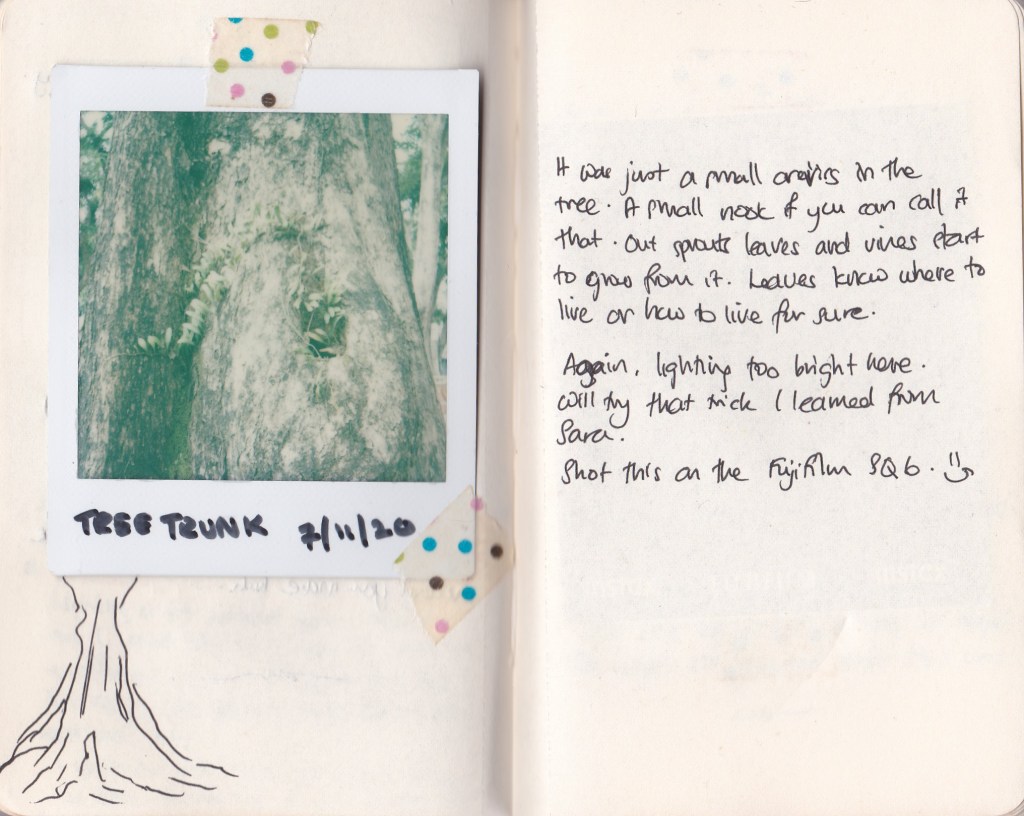 TREE TRUNK 7/11/20
It was just a small in the
tree. A small nook if you can call it
that. Out sprouts leaves and vines start
to grow from it. Leaves know where to
live or how to live for sure.
Again, lighting too bright here.
Will try that trick I learned from
Sara.
Shot this on the Fujifilm SQ6.